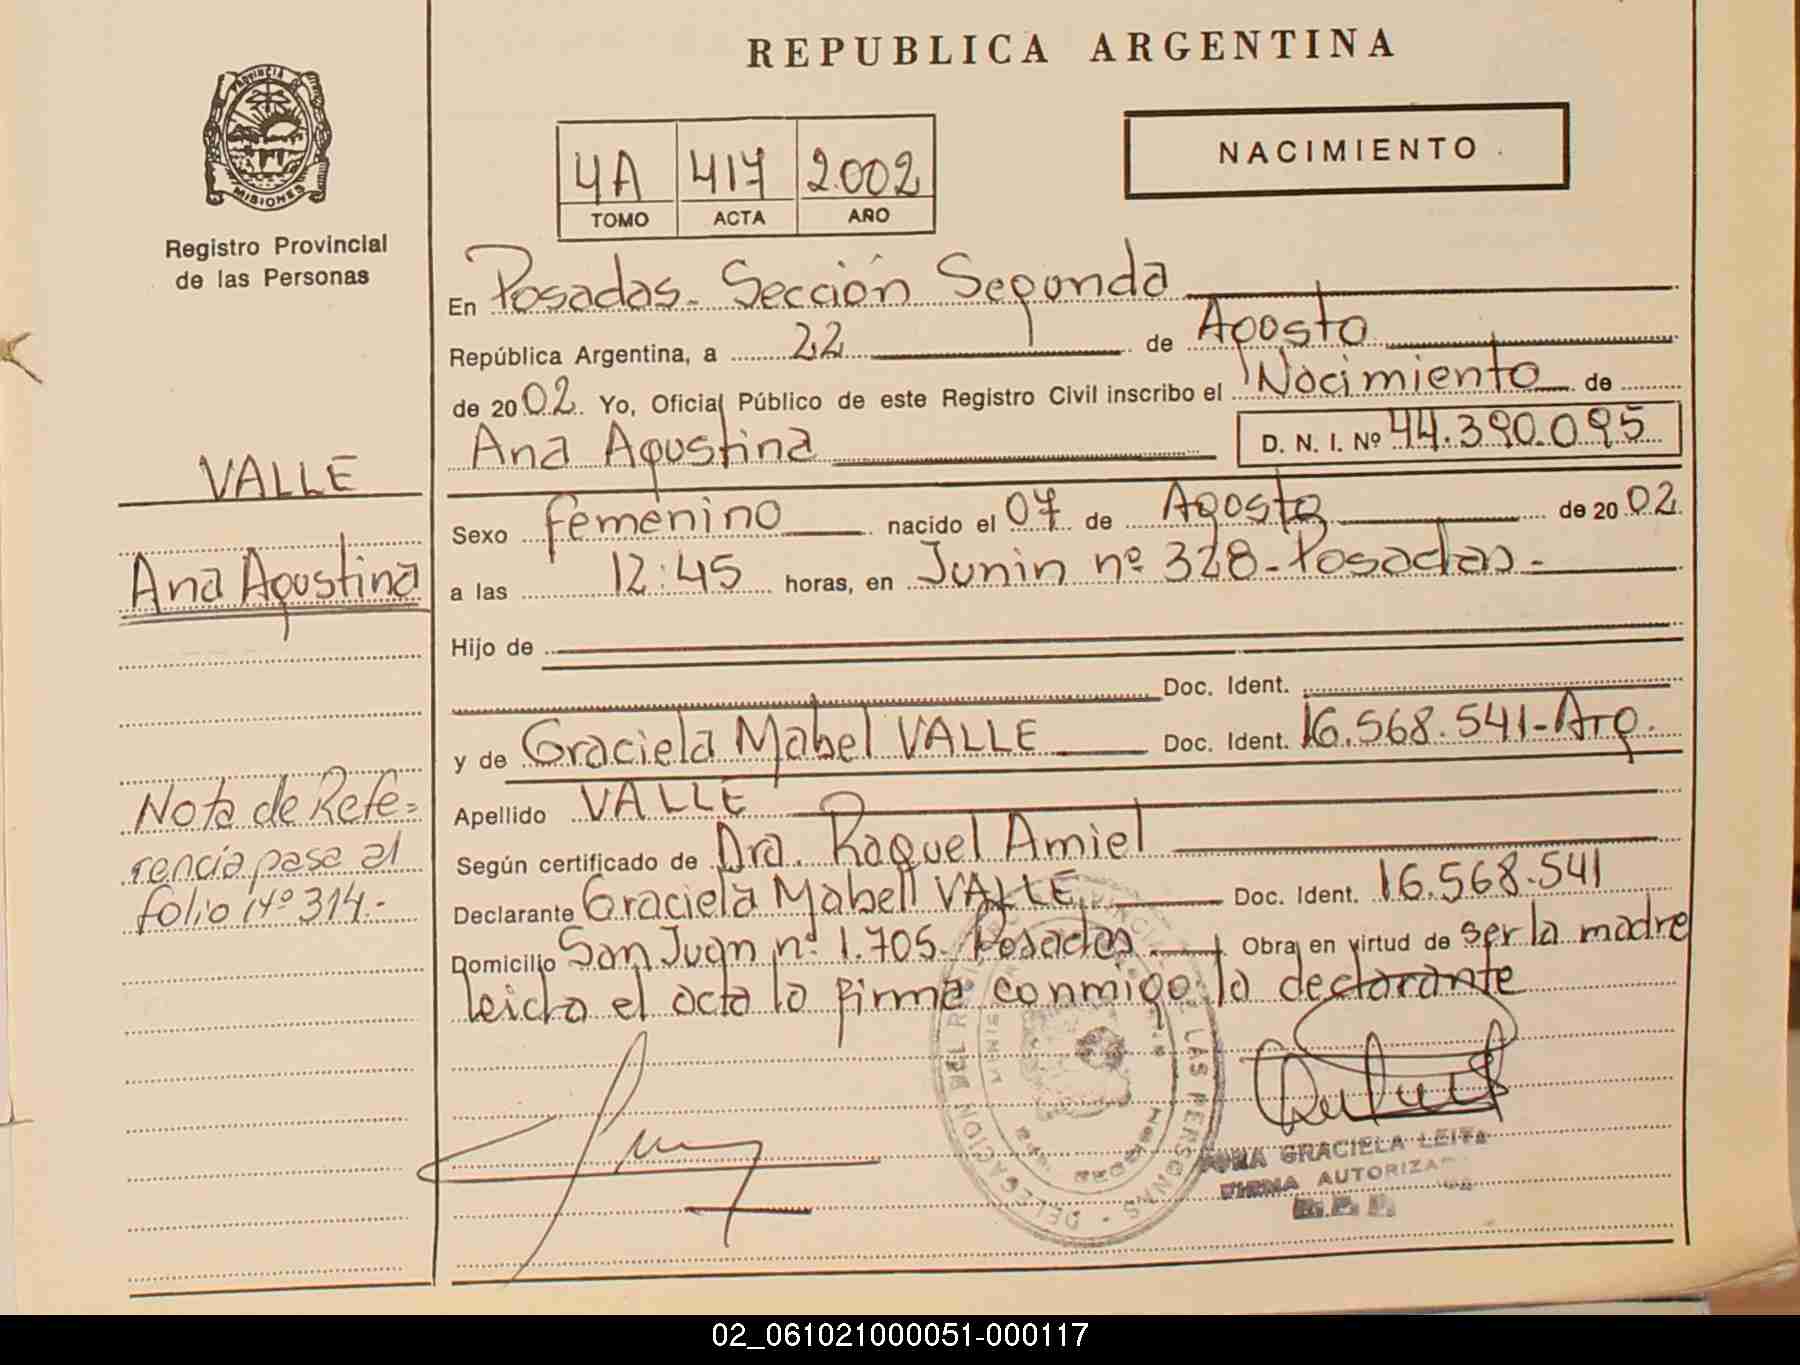 REPUBLICA ARGENTINA
PROVINCIA DE
MISIONES
Registro Provincial
de las Personas
4A 417 2.002
TOMO ACTA AÑO
NACIMIENTO
En Posadas. Sección Segunda
República Argentina, a 22 de Agosto
de 2002. Yo, Oficial Público de este Registro Civil inscribo el Nacimiento de
Ana Agustina D. N. I. Nº 44.390.095
VALLE
Ana Agustina
Sexo femenino nacido el 07 de Agosto de 2002
a las 12:45 horas, en Junin nº 328-Posadas-
Hijo de
Doc. Ident.
y de Graciela Mabel VALLE Doc. Ident. 16.568.541-Arg.
Apellido VALLE
Según certificado de Dra. Raquel Amiel
Declarante Graciela Mabell VALLE Doc. Ident. 16.568.541
Domicilio San Juan nº 1.705. Posadas Obra en virtud de ser la madre
leida el acta la firma conmigo la declarante
Nota de Refe=
rencia pasa al
folio Nº 314.-
DELEGACION DEL REGISTRO PROVINCIAL DE LAS PERSONAS
GRACIELA LEITA
FIRMA AUTORIZADA
02_061021000051-000117